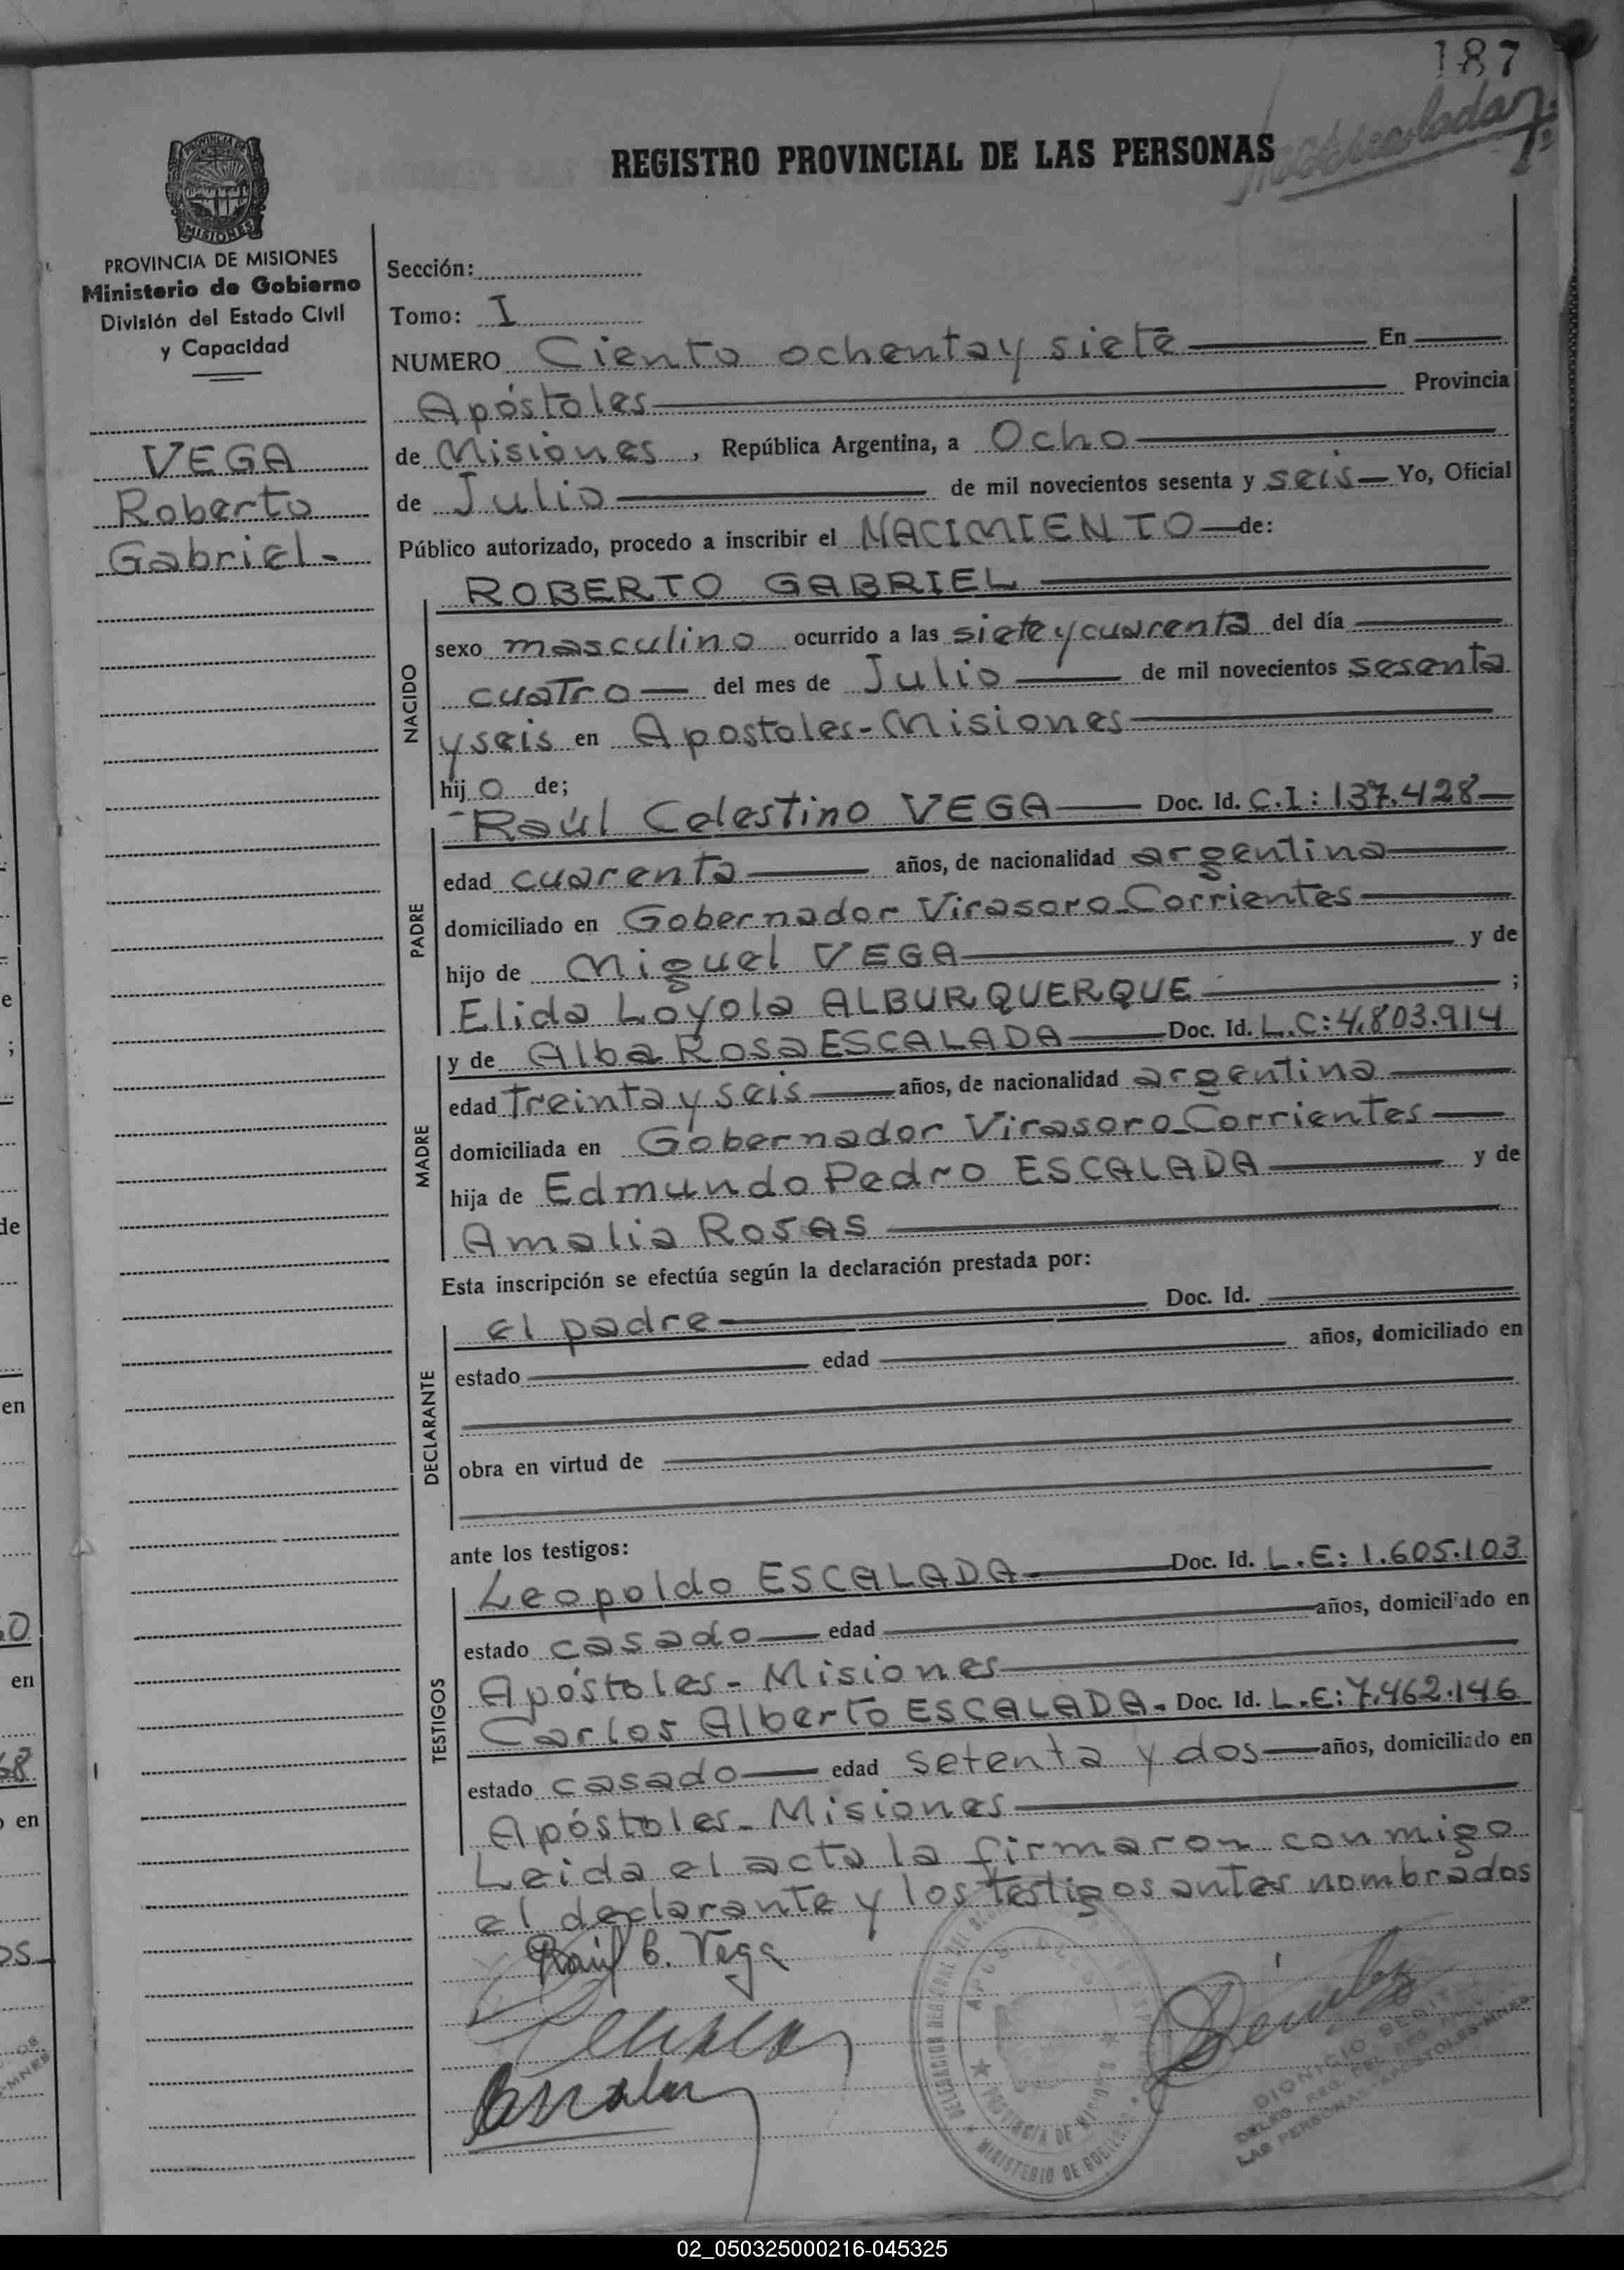 187
REGISTRO PROVINCIAL DE LAS PERSONAS
PROVINCIA DE
MISIONES
PROVINCIA DE MISIONES
Ministerio de Gobierno
División del Estado Civil
y Capacidad
VEGA
Roberto
Gabriel-
Sección:
Tomo: I
NUMERO Ciento ochenta y siete En
Apóstoles Provincia
de Misiones, República Argentina, a Ocho
de Julio de mil novecientos sesenta y seis Yo, Oficial
Público autorizado, procedo a inscribir el NACIMIENTO de:
ROBERTO GABRIEL
NACIDO
sexo masculino ocurrido a las siete y cuarenta del día
cuatro del mes de Julio de mil novecientos sesenta
y seis en Apostoles-Misiones
hijo de;
PADRE
Raúl Celestino VEGA Doc. Id. C.I: 137.428
edad cuarenta años, de nacionalidad argentina
domiciliado en Gobernador Virasoro-Corrientes
hijo de Miguel VEGA y de
Elida Loyola ALBURQUERQUE ;
MADRE
y de Alba Rosa ESCALADA Doc. Id. L.C: 4.803.914
edad Treinta y seis años, de nacionalidad argentina
domiciliada en Gobernador Virasoro-Corrientes
hija de Edmundo Pedro ESCALADA y de
Amalia ROSAS
Esta inscripción se efectúa según la declaración prestada por:
DECLARANTE
el padre Doc. Id.
estado edad años, domiciliado en
obra en virtud de
ante los testigos:
TESTIGOS
Leopoldo ESCALADA Doc. Id. L.E: 1.605.103
estado casado edad años, domiciliado en
Apóstoles-Misiones
Carlos Alberto ESCALADA- Doc. Id. L.E: 7.462.146
estado casado edad setenta y dos años, domiciliado en
Apóstoles-Misiones
Leida el acta la firmaron conmigo
el declarante y los testigos antes nombrados
Raúl C. Vega
PROVINCIA DE MISIONES
MINISTERIO DE GOBIERNO
DIONICIO BENIT
DELEG. REG. DEL REG. PROV.
LAS PERSONAS-APOSTOLES-MNES.
02_050325000216-045325